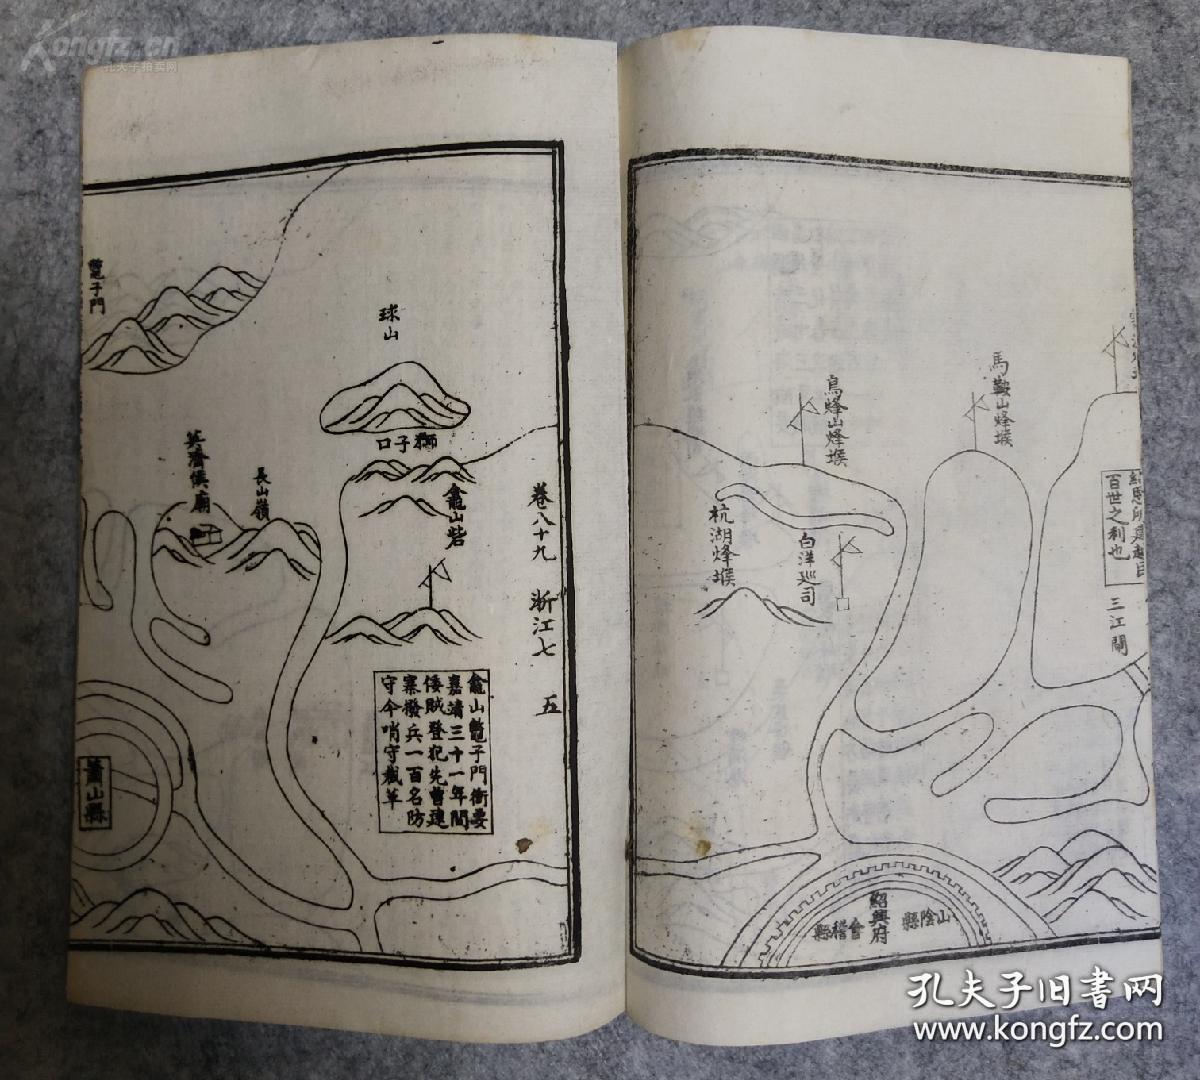 Kongfz.cn
孔夫子拍卖网
馬鞍山烽堠
烏烽山烽堠
杭湖烽堠
白洋巡司
百世之利也
三江閘
紹興府
山陰縣
會稽縣
卷八十九 浙江七 五
球山
獅子口
龕山砦
長山嶺
英濟侯廟
鼈子門
龕山鼈子門衝要
嘉靖三十一年間
倭賊登犯先曹建
寨撥兵一百名防
守今哨守裁革
蕭山縣
孔夫子旧書网
www.kongfz.com